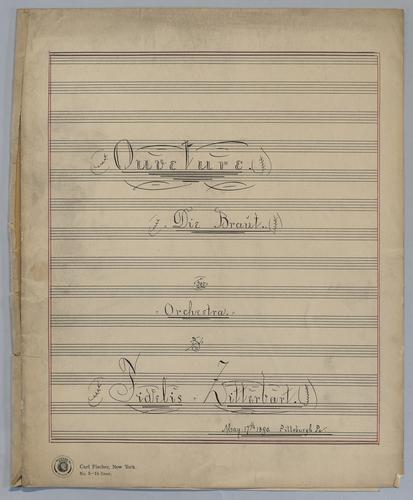 Ouveture.
Die Braut.
For
Orchestra.
By
Fidelis Zitterbart.
May 17th Pittsburgh Pa.
Carl Fischer, New York.